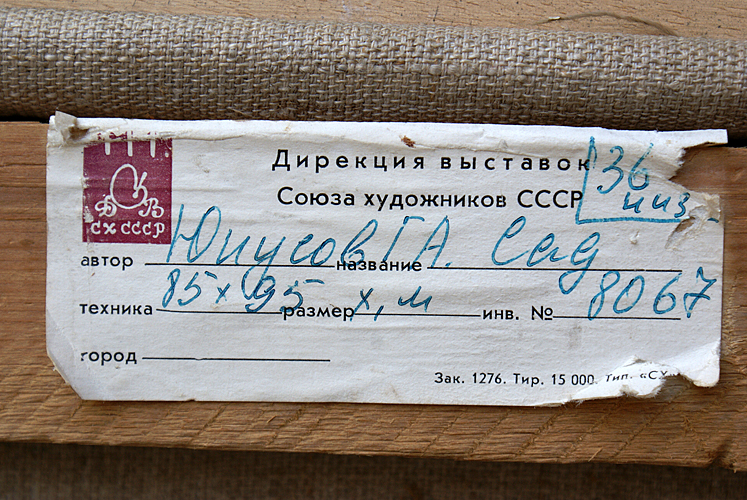 Дирекция выставок
Союза художников СССР
36
низ
ДВ
СХ СССР
автор Юнусов Г А. название Сад
техника 85 x 95 размер х, м инв. № 8067
город
Зак. 1276. Тир. 15 000. Тип. «СХ